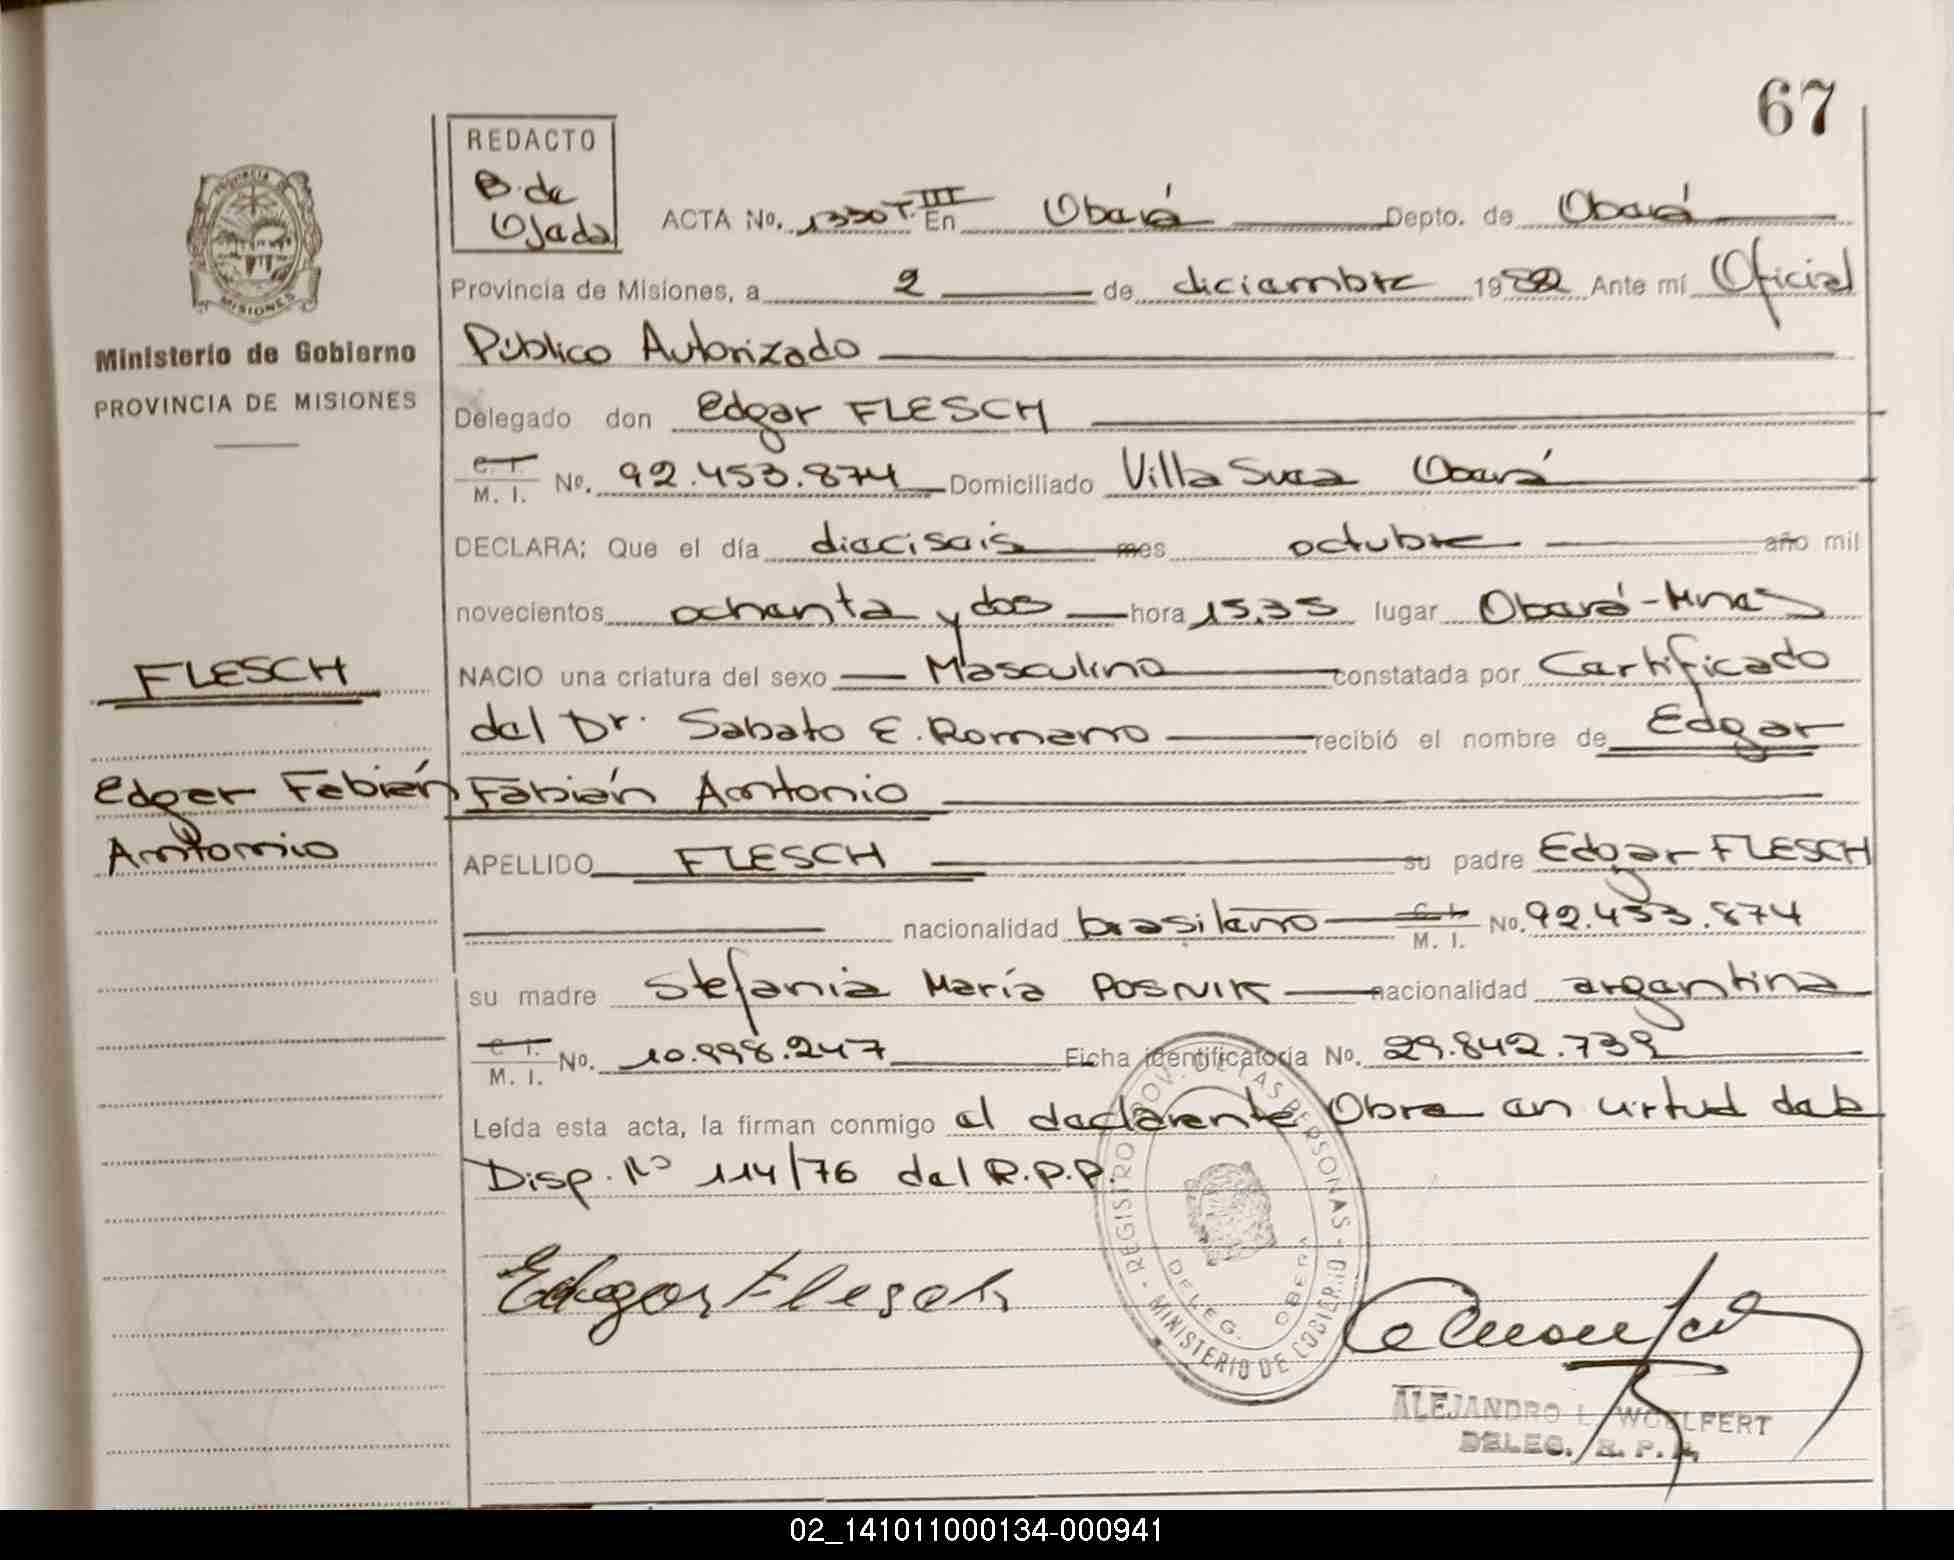 67
REDACTO
B. de
Ojeda
ACTA No. 1330 T. III En Oberá Depto. de Oberá
Provincia de Misiones, a 2 de diciembre 1982 Ante mí Oficial
Ministerio de Gobierno
PROVINCIA DE MISIONES
Público Autorizado
Delegado don Edgar FLESCH
C. I.
M. I. No. 92.453.874 Domiciliado Villa Svea Oberá
DECLARA; Que el día dieciseis mes octubre año mil
novecientos ochenta y dos hora 15,35 lugar Oberá-Mnes
FLESCH
NACIO una criatura del sexo Masculino constatada por Certificado
del Dr. Sabato E. Romano recibió el nombre de Edgar
Edger Fabián
Antonio
Fabián Antonio
APELLIDO FLESCH su padre Edgar FLESCH
nacionalidad brasileño C. I.
M. I. No. 92.453.874
su madre Stefania María POSNIK nacionalidad argentina
C. I.
M. I. No. 10.998.247 Ficha identificatoria No. 29.842.739
Leída esta acta, la firman conmigo el declarente Obra en virtud de la
Disp. No 114/76 del R.P.P.
REGISTRO PROV. DE LAS PERSONAS
MINISTERIO DE GOBIERNO
DELEG. OBERA
Edgar Flesch
ALEJANDRO L. WOELFERT
DELEG. R. P. P.
02_141011000134-000941